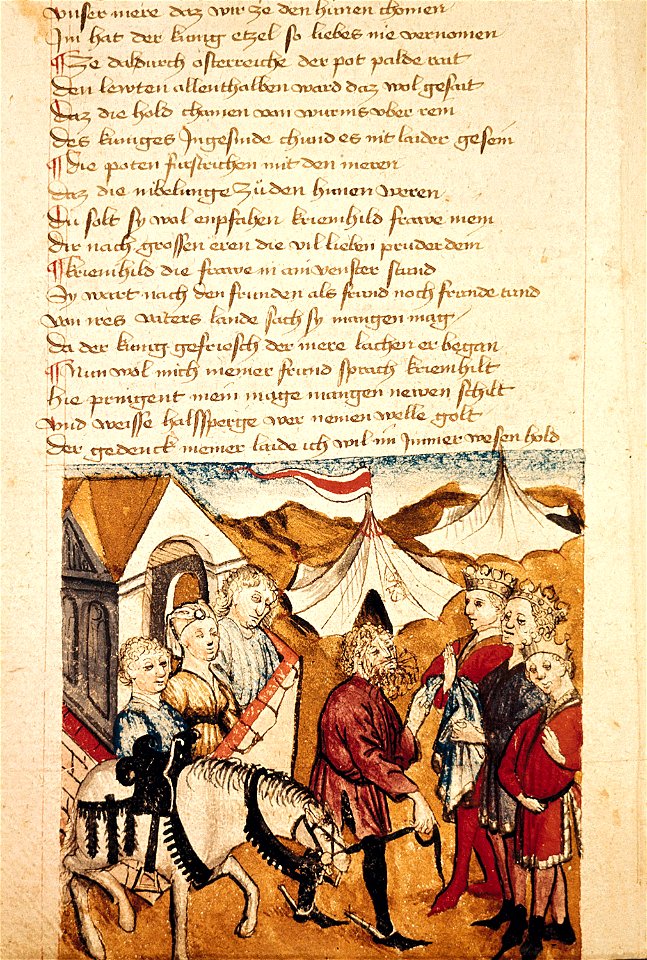 vnser mere daz wir ze den hunen chomen
Im hat der kunig etzel so liebes nie vernomen
¶ Ze dal durch osterreiche der pot palde rait
den lewten allenthalben ward daz wol gesait
daz die hold chamen von wurms vber rein
des kuniges Ingesinde chund es nit laider gesein
¶ die poten furstrichen mit den meren
daz die nibelunge zu den hunen weren
du solt sy wol enpfahen kriemhild frawe mein
dir nach grossen eren die vil lieben pruder dein
¶ kriemhild die frawe in ain venster stand
Sy wart nach den frunden als frund noch frunde tand
von ires vaters lande sach sy mangen mag
da der kunig gefriesch der mere lachen er began
¶ Nun wol mich meiner frund sprach kriemhilt
hie pringent mein mage mangen newen schilt
vnd weisse halssperge wer nemen welle golt
der gedenck meiner laide ich wil im Immer wesen hold